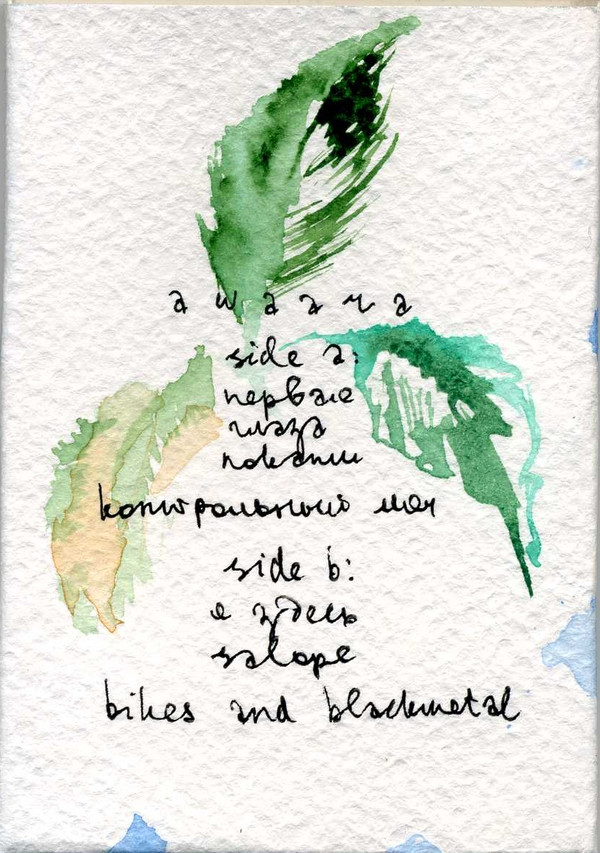 a w a a r a
side a:
первая
глаза
контрольный
side b:
я здесь
salope
bikes and blackmetal